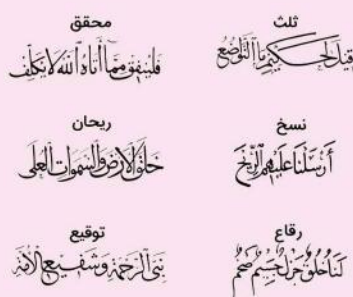 ثلث
قيل لحكيم ما التواضع
محقق
فلينفق مما أتاه الله لا يكلف
نسخ
أرسلنا عليهم الريح
ريحان
خلق الأرض والسموات العلى
رقاع
لنا خلق جزل
توقيع
نبي الرحمة وشفيع الأمة